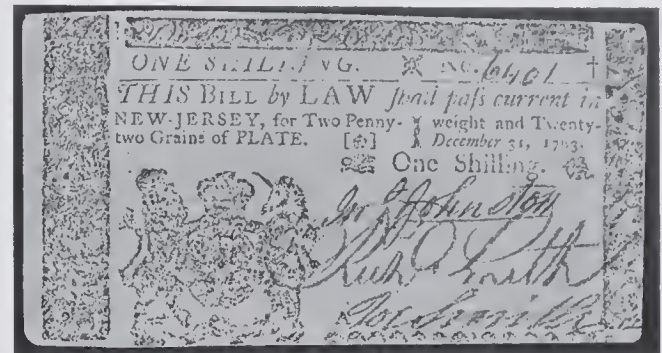 ONE SHILLING. No. 6401 †
THIS BILL by LAW ſhall paſs current in
NEW-JERSEY, for Two Penny-weight and Twenty-
two Grains of PLATE. December 31, 1763.
One Shilling.
Jno Johnston
Richd Smith
Jos. Smith